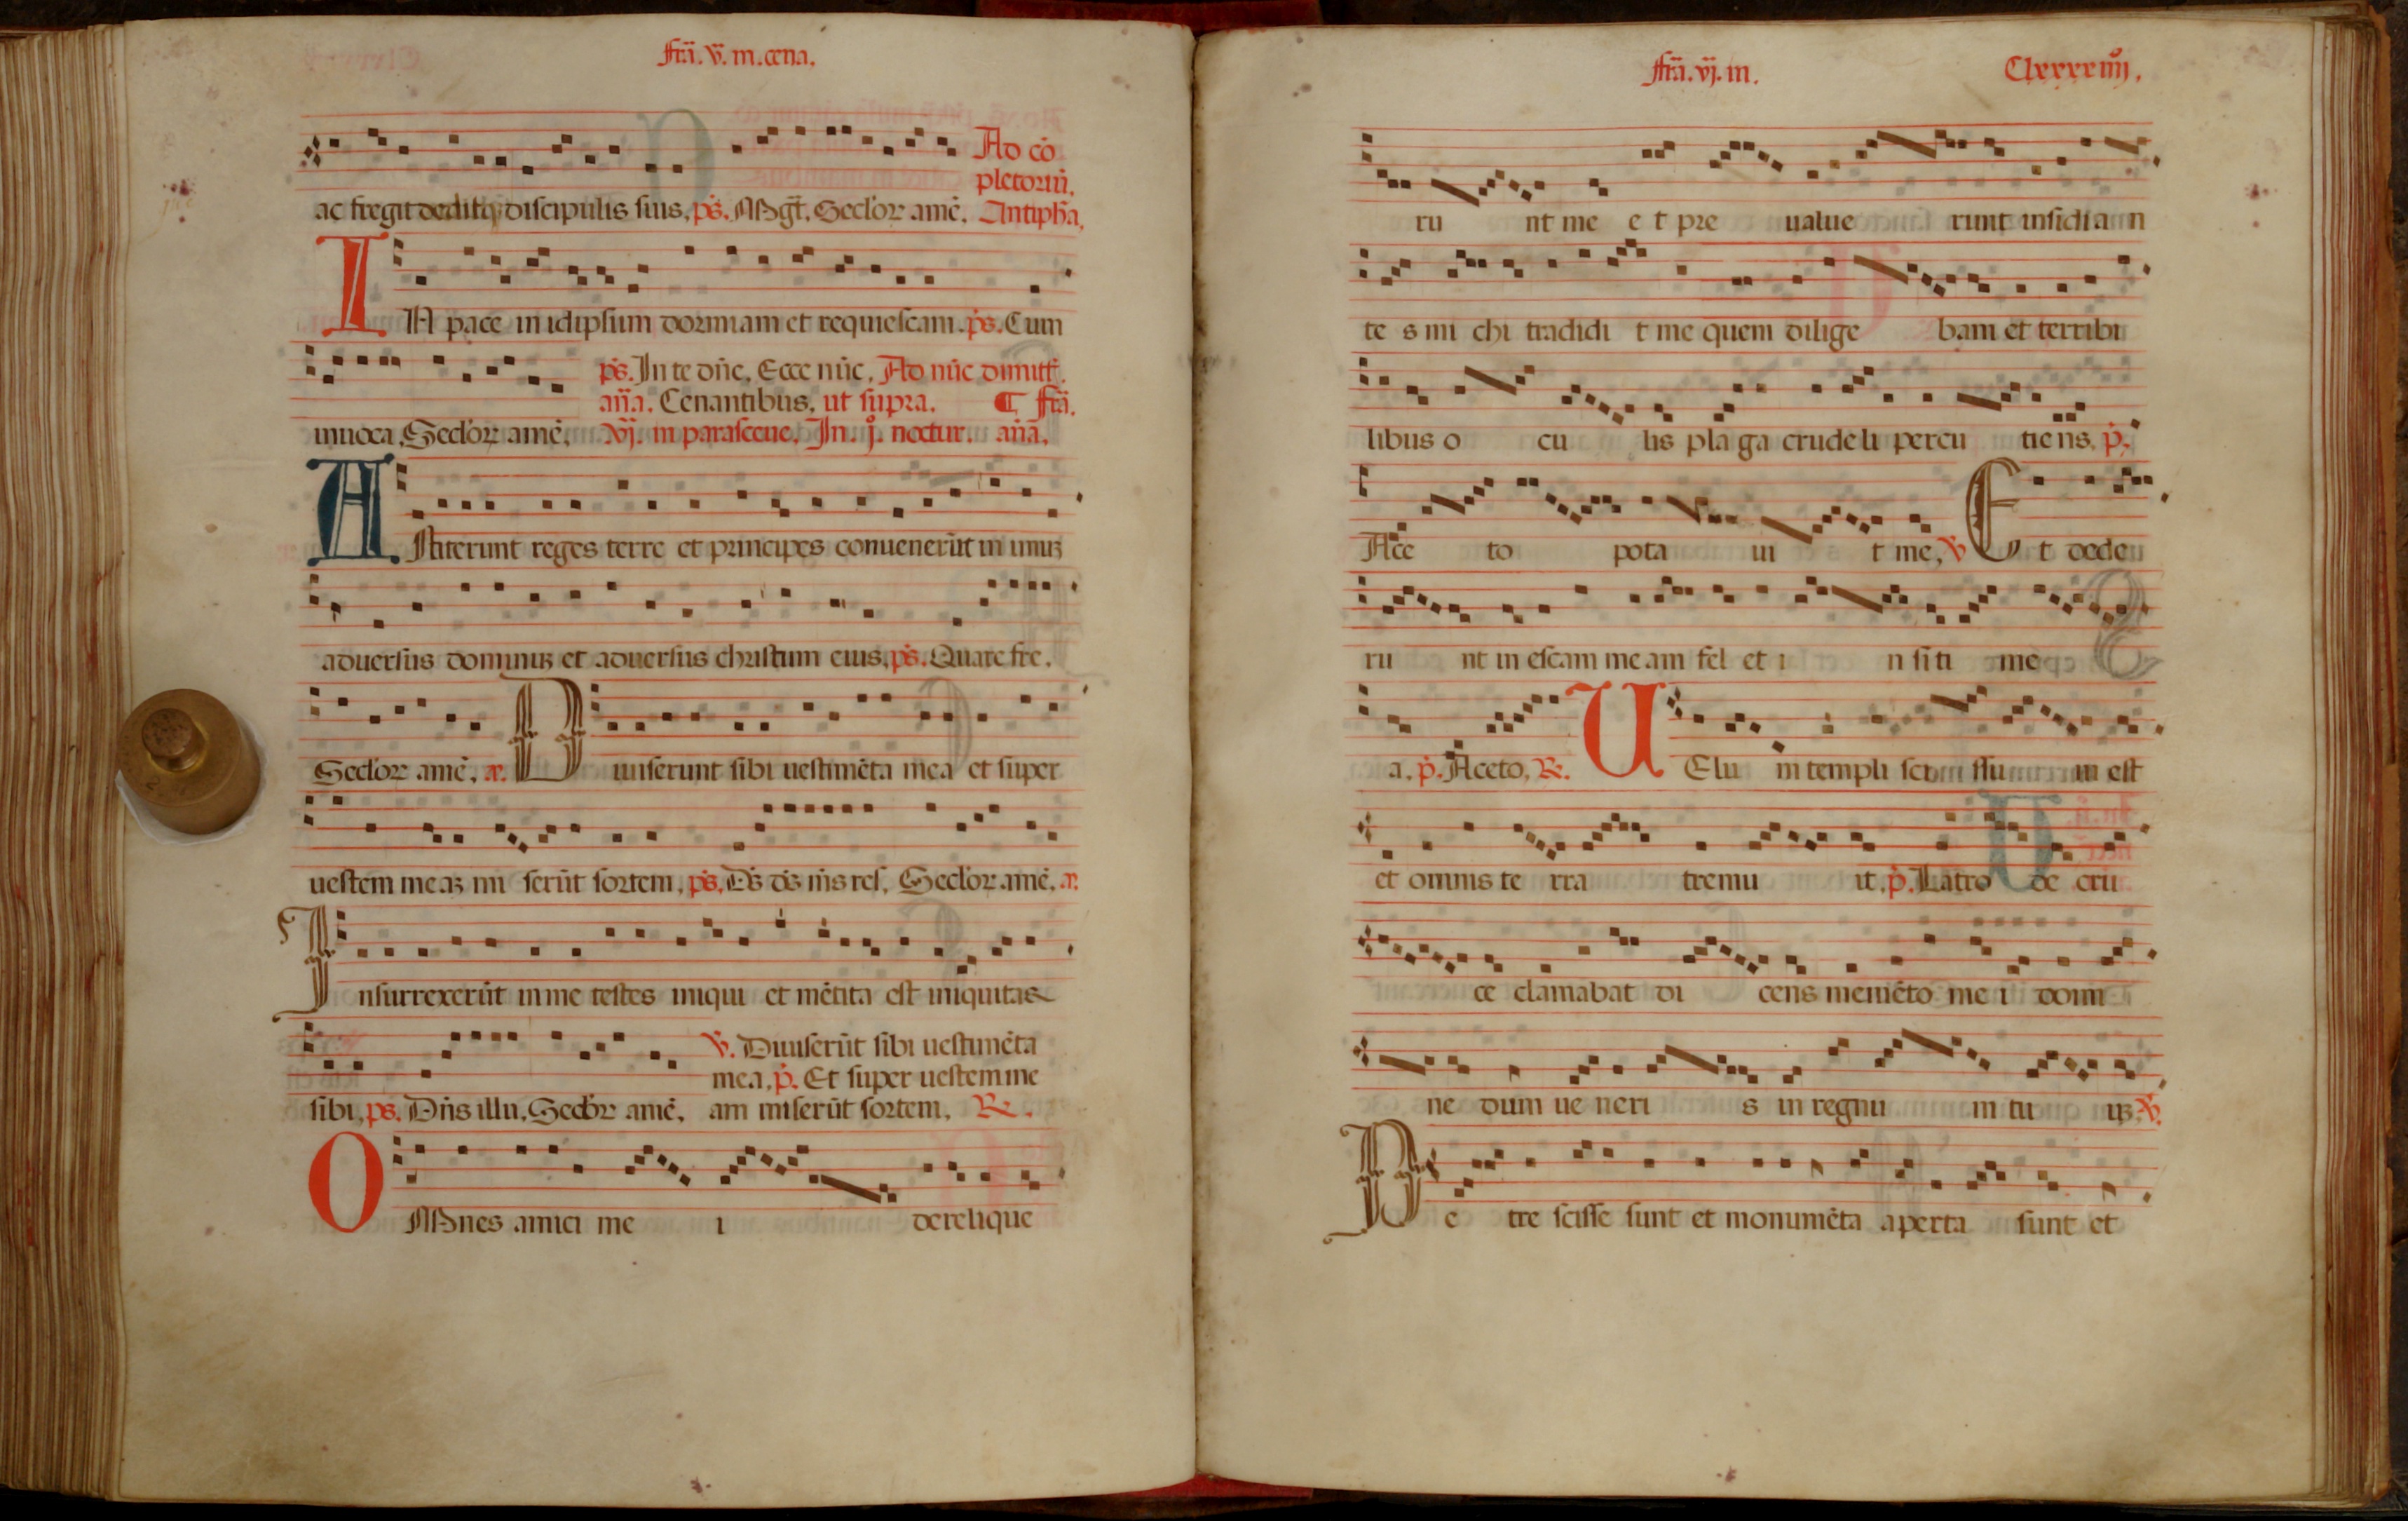 fr̄a. v̄. in. cena.
Ad cō
pletoriū.
ac fregit deditq; discipulis suis. ps̄. Maḡt. Seclor amē. Antiph̄a.
IN pace in idipsum dormiam et requiescam. ps̄. Cum
ps̄. In te dn̄e. Ecce nūc. Ad nūc dimitt̄.
an̄a. Cenantibus, ut supra. ¶ fr̄a.
inuoca. Seclor amē. vj. in parasceue. In. j. noctur. an̄a.
Astiterunt reges terre et principes conuenerūt in unuꝫ
aduersus dominuꝫ et aduersus christum eius. ps̄. Quare fre.
Seclor amē. a. Diuiserunt sibi uestimēta mea et super
uestem meaꝫ mi serūt sortem. ps̄. Ds̄ ds̄ ms̄ res. Seclor amē. a.
Insurrexerūt in me testes iniqui et mētita est iniquitas
℣. Diuiserūt sibi uestimēta
mea. p̄. Et super uestem me
sibi. ps̄. Dn̄s illu. Seclor amē. am miserūt sortem. ℞.
OMnes amici me i derelique
fr̄a. vj. in. Clxxxxiiij.
ru nt me e t pre ualue runt insidi an
te s mi chi tradidi t me quem dilige bam et terribi
libus o cu lis pla ga crudeli percu tiens. p̄.
Ace to pota ui t me. ℣ Et dede
ru nt in escam meam fel et i n siti me
a. p̄. Aceto. ℞. UElu m templi sci ssu m est
et omnis te rra tremu it. p̄. Latro de cru
ce clamabat di cens memēto me i domi
ne dum ue neri s in regnu m tu uꝫ. ℣.
Pe tre scisse sunt et monumēta aperta sunt et